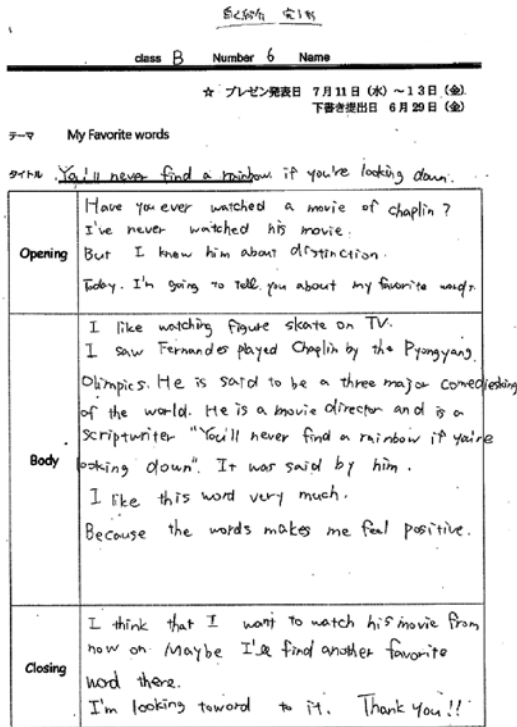 class B Number 6 Name
☆ プレゼン発表日 7月11日（水）～13日（金）
下書き提出日 6月29日（金）
テーマ My Favorite words
タイトル You'll never find a rainbow if you're looking down.
Have you ever watched a movie of chaplin?
I've never watched his movie.
Opening But I knew him about distinction.
Today. I'm going to tell you about my favorite words.
I like watching figure skate on TV.
I saw Fernandes played Chaplin by the Pyongyang
Olimpics. He is said to be a three major comedies king
of the world. He is a movie director and is a
scriptwriter "You'll never find a rainbow if you're
Body looking down". It was said by him.
I like this word very much.
Because the words makes me feel positive.
I think that I want to watch his movie from
now on. Maybe I'll find another favorite
Closing word there.
I'm looking toword to it. Thank you!!